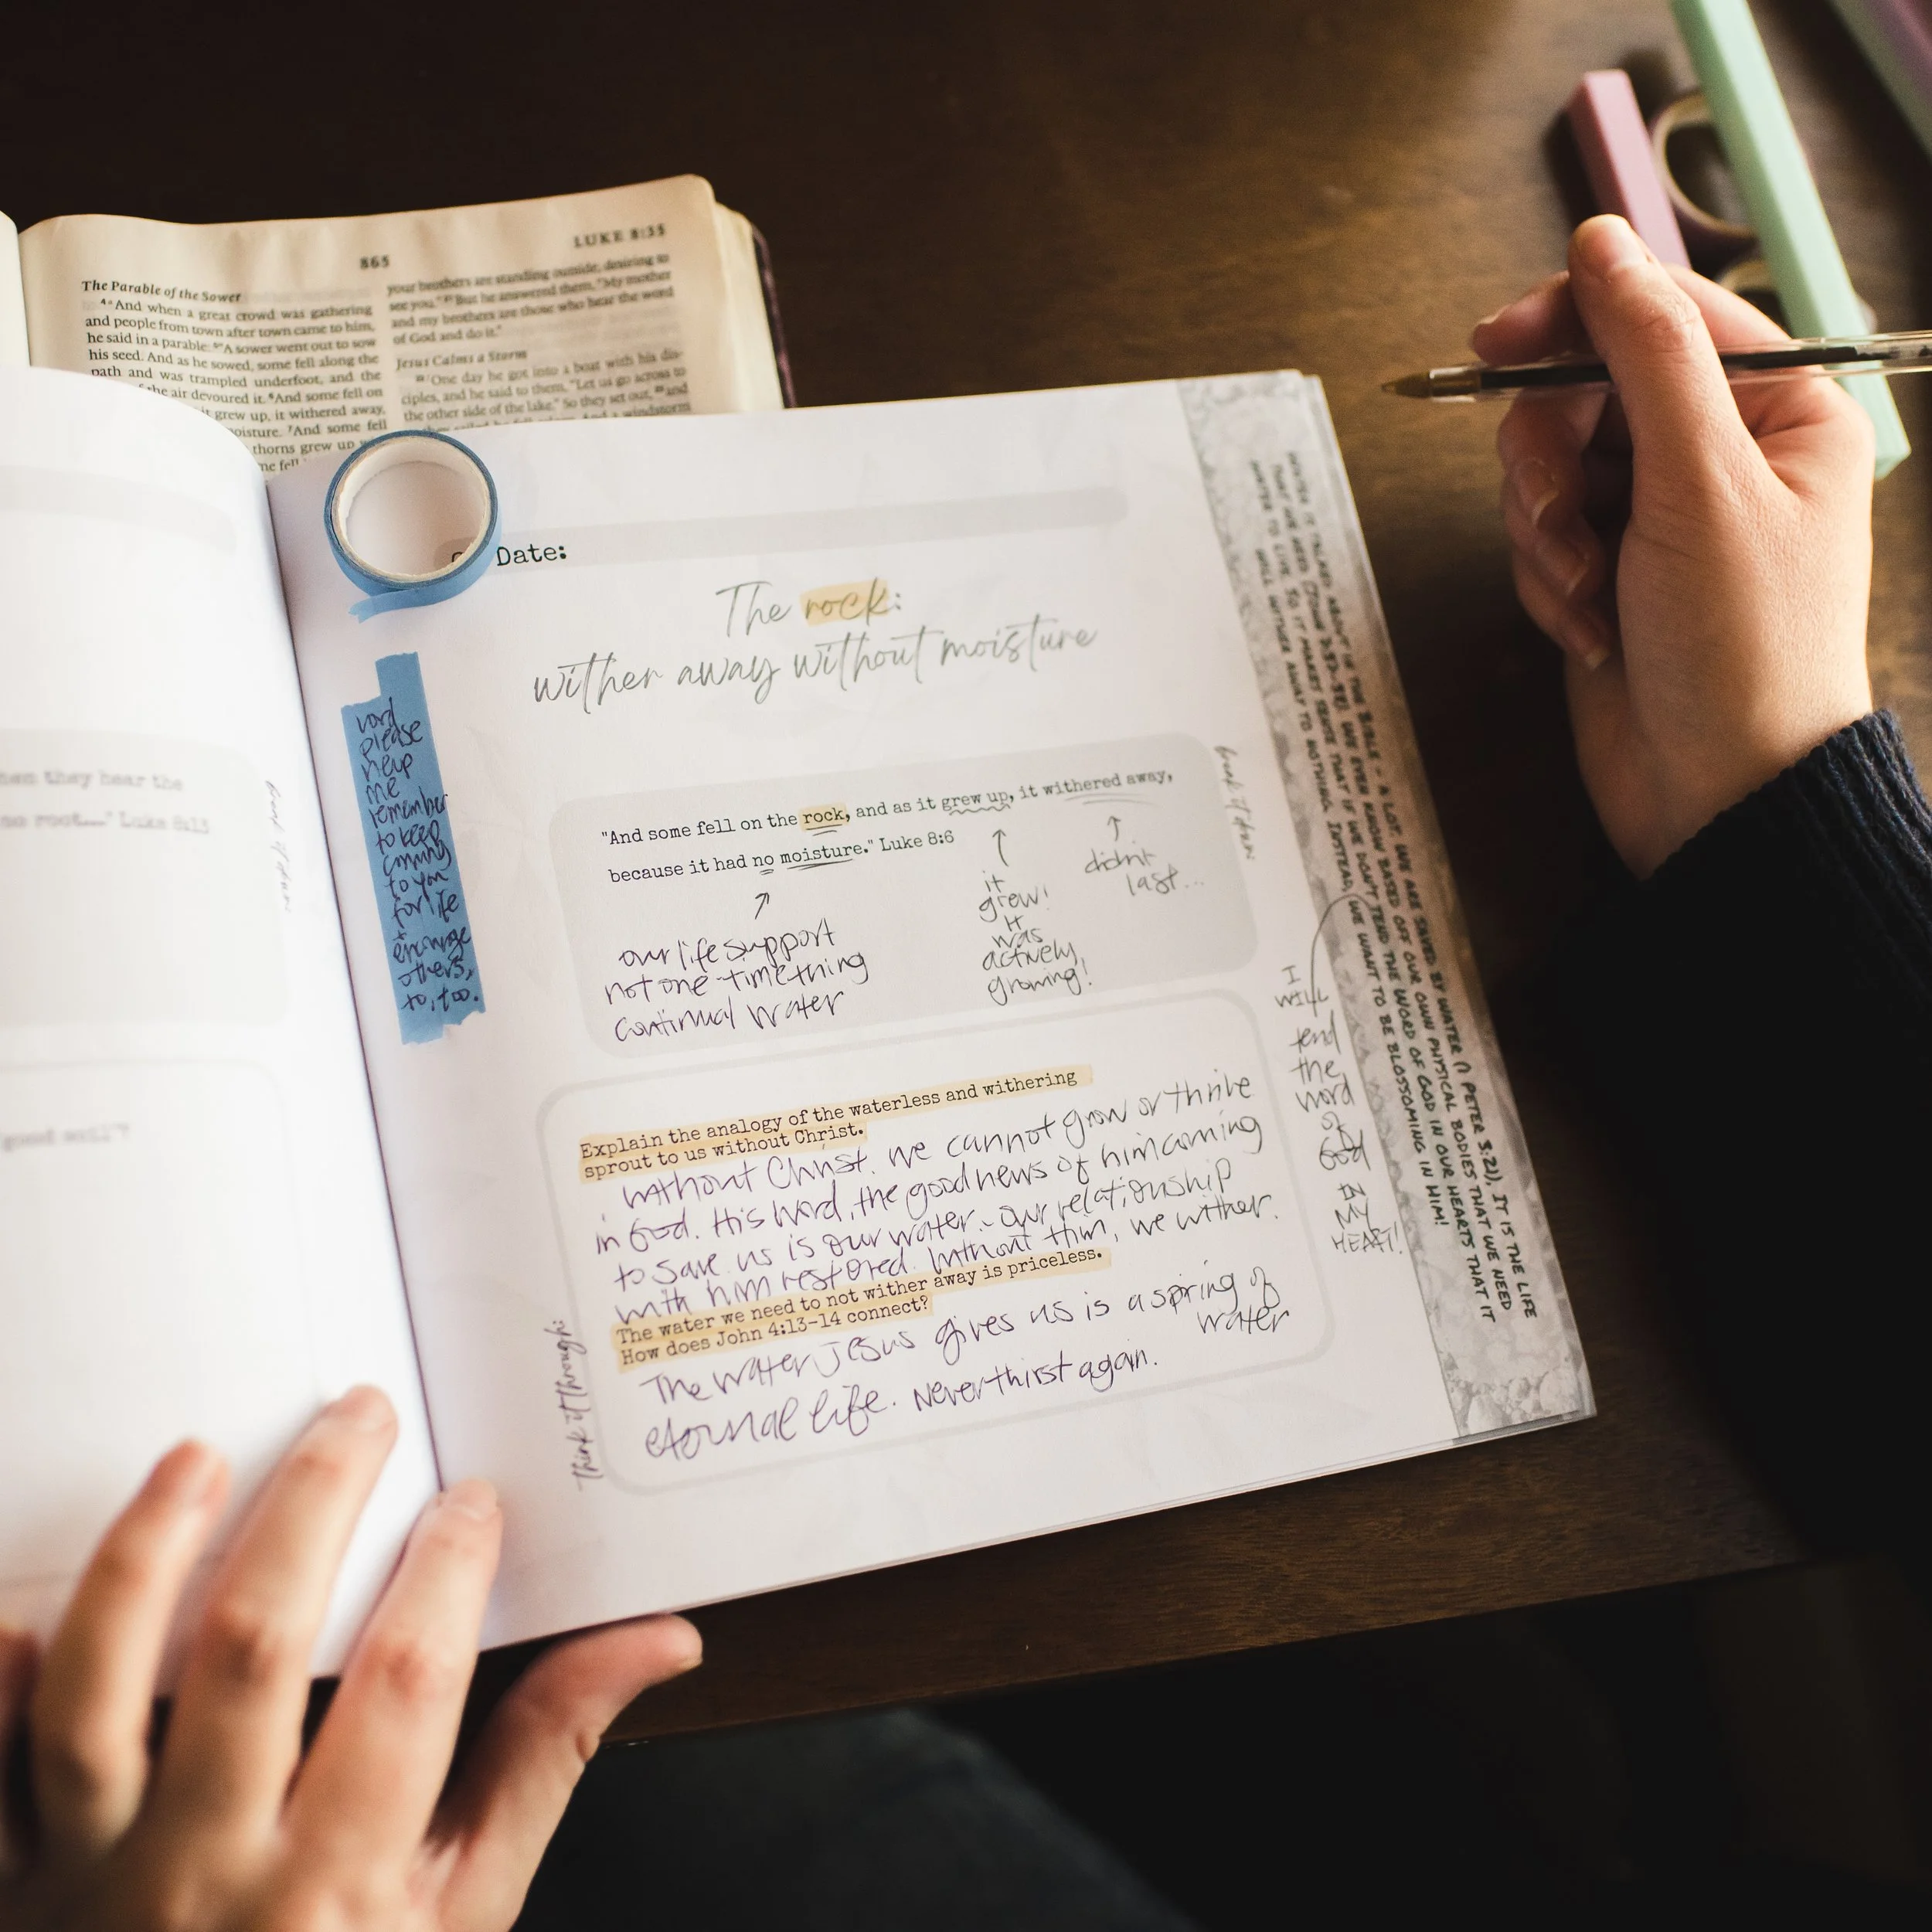 865
LUKE 8:35
The Parable of the Sower
4 "And when a great crowd was gathering
and people from town after town came to him,
he said in a parable: 5"A sower went out to sow
his seed. And as he sowed, some fell along the
path and was trampled underfoot, and the
the air devoured it. 6And some fell on
it grew up, it withered away,
moisture. 7And some fell
thorns grew up
fell
your brothers are standing outside, desiring to
see you." 21 But he answered them, "My mother
and my brothers are those who hear the word
of God and do it."
Jesus Calms a Storm
22 One day he got into a boat with his dis-
ciples, and he said to them, "Let us go across to
the other side of the lake." So they set out, 23 and
a windstorm
hen they hear the
no root...." Luke 8:13
break it down
good soil"?
Date:
The rock:
wither away without moisture
Lord
please
help
me
remember
to keep
coming
to you
for life
+
encourage
others,
to, too.
"And some fell on the rock, and as it grew up, it withered away,
because it had no moisture." Luke 8:6
break it down
our life support
not one-time thing
continual water
it
grew!
It
was
actively
growing!
didn't
last...
Explain the analogy of the waterless and withering
sprout to us without Christ.
without Christ. we cannot grow or thrive
in God. His word, the good news of him coming
to save us is our water - our relationship
with him restored. Without Him, we wither.
The water we need to not wither away is priceless.
How does John 4:13-14 connect?
The water Jesus gives us is a spring of
water
eternal life. Never thirst again.
Think it through:
WATER IS TALKED ABOUT IN THE BIBLE - A LOT. WE ARE SAVED BY WATER (1 PETER 3:21), IT IS THE LIFE
THAT WE NEED (JOHN 7:37-38). WE EVEN KNOW BASED OFF OUR OWN PHYSICAL BODIES THAT WE NEED
WATER TO LIVE. SO IT MAKES SENSE THAT IF WE DON'T TEND THE WORD OF GOD IN OUR HEARTS THAT IT
WILL WITHER AWAY TO NOTHING. INSTEAD, WE WANT TO BE BLOSSOMING IN HIM!
I
WILL
tend
the
word
of
God
IN
MY
HEART!